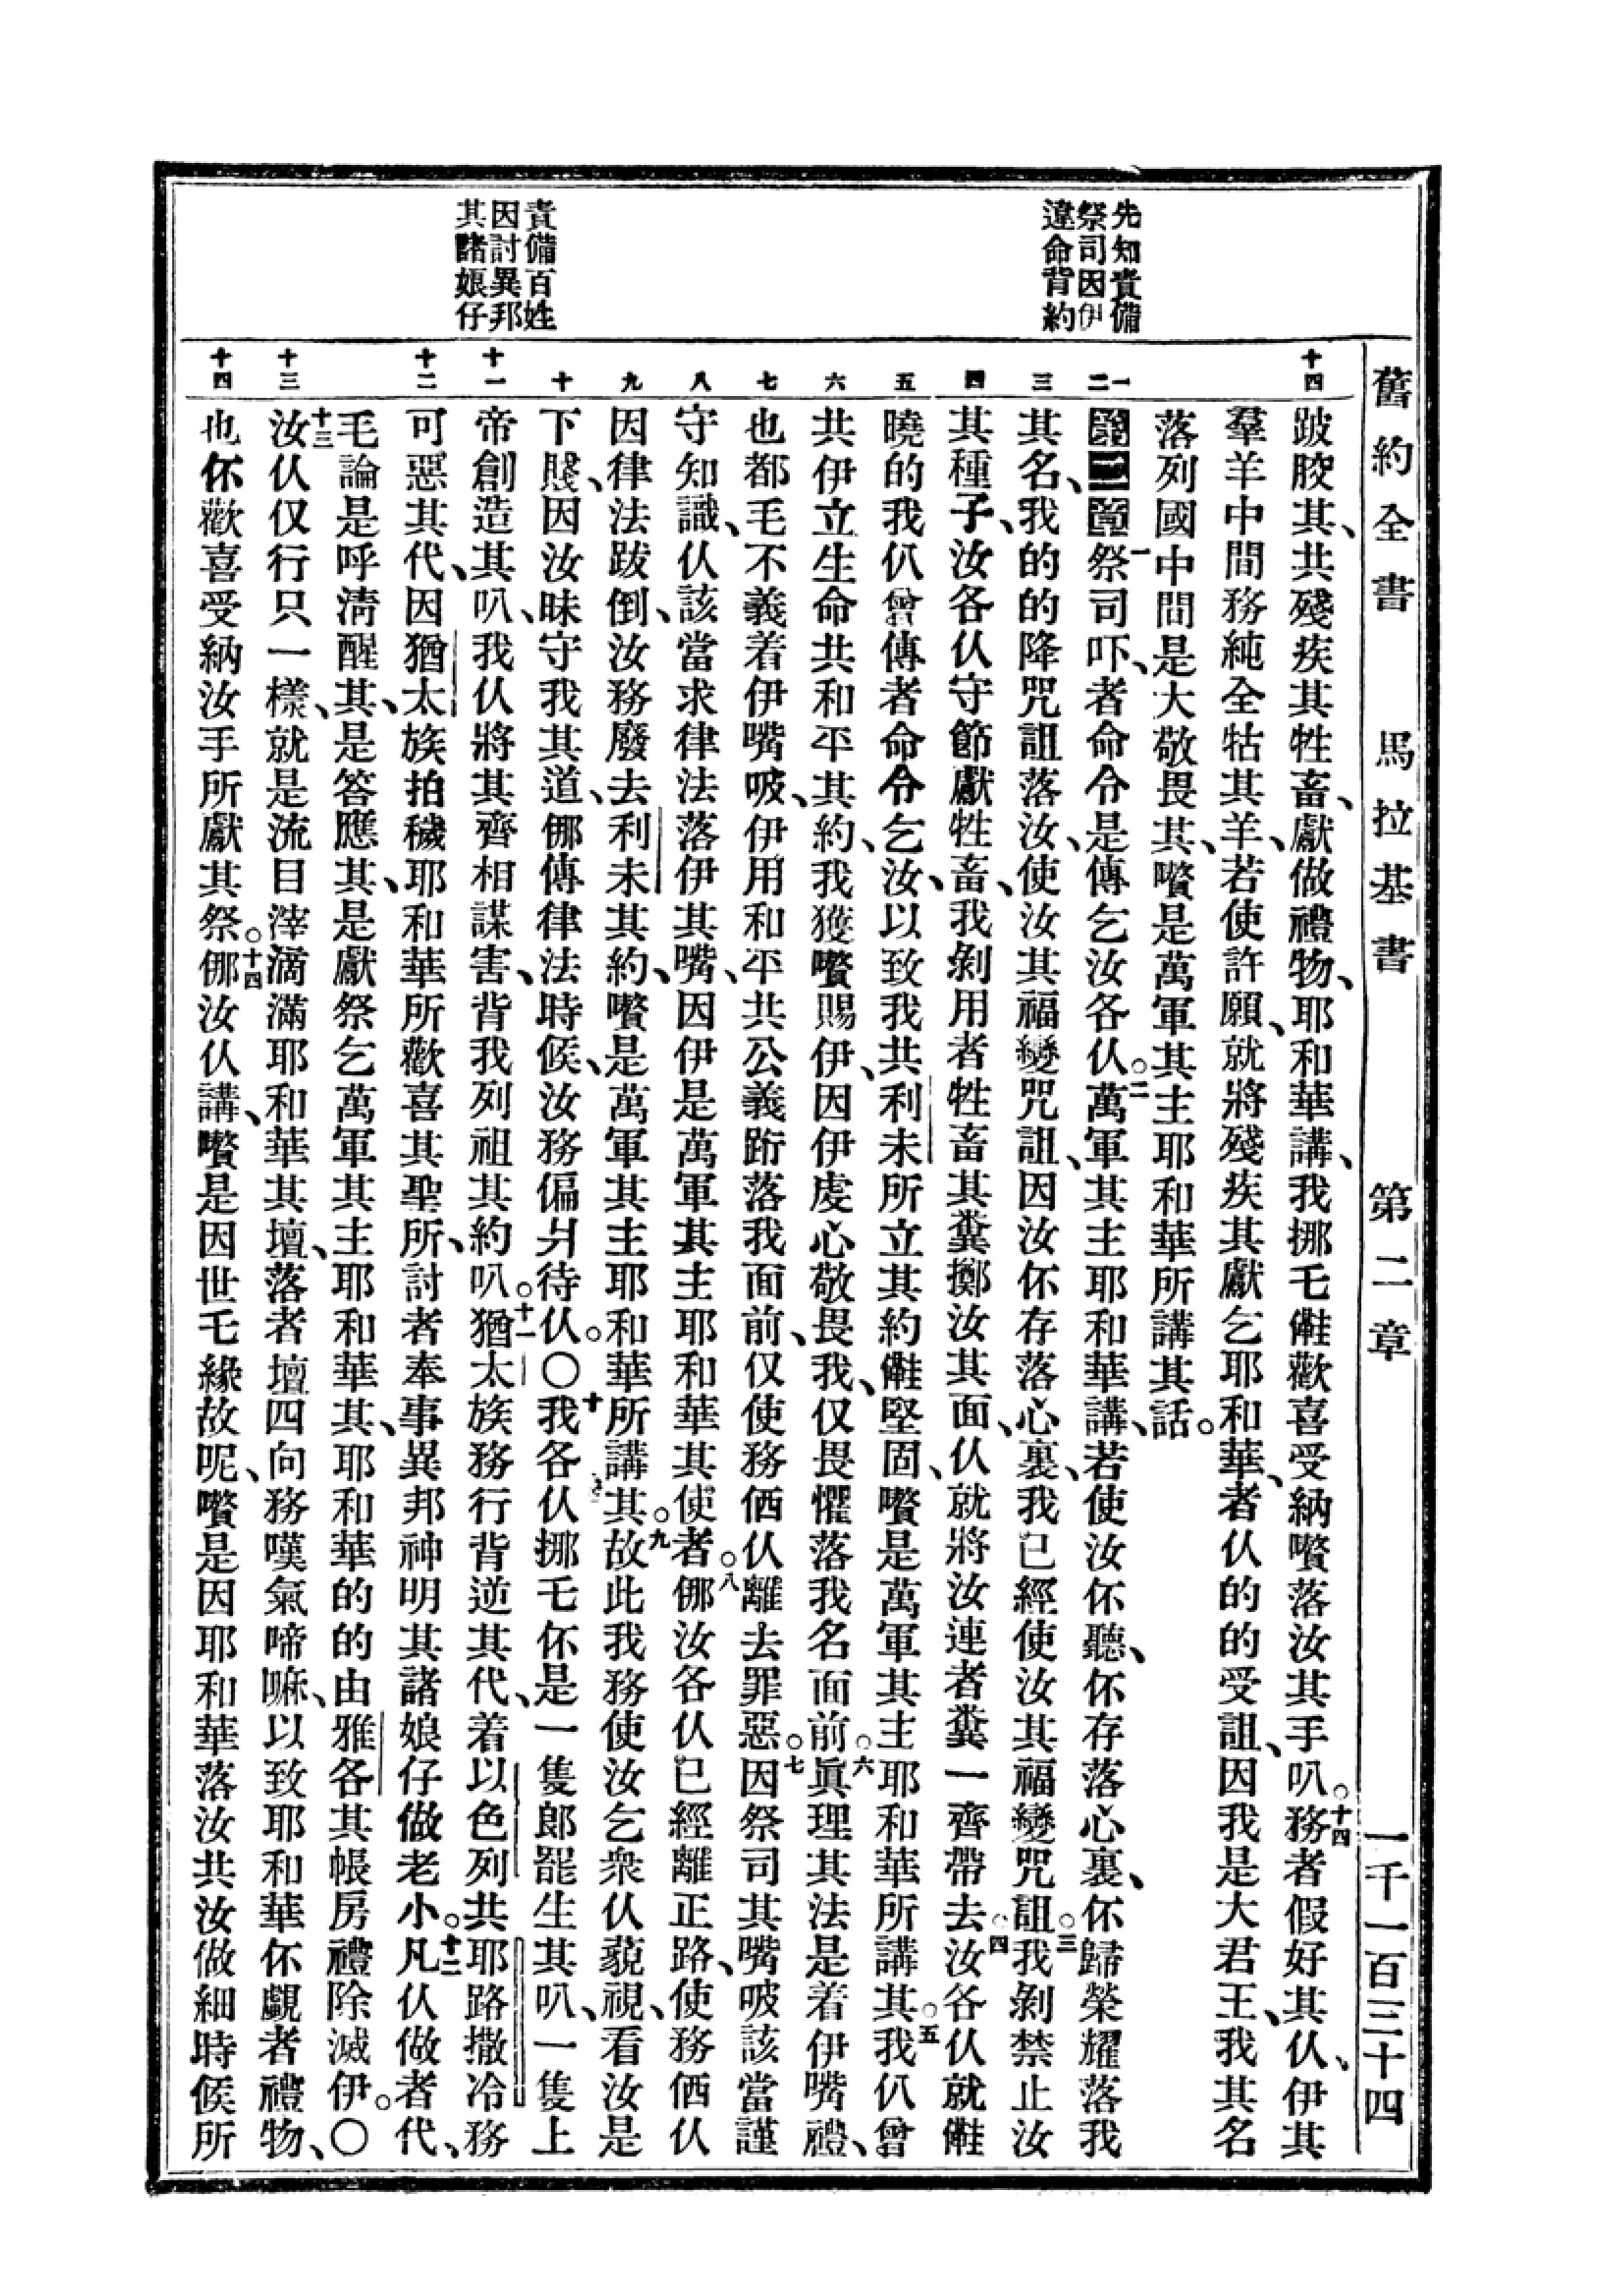 舊約全書 馬拉基書 第二章 一千一百三十四
先知責備
祭司因伊
違命背約
責備百姓
因討異邦
其諸娘仔
十四
一
二
三
四
五
六
七
八
九
十
十一
十二
十三
十四
跛胶其、共殘疾其牲畜、獻做禮物、耶和華講、我挪乇𣍐歡喜受納囋落汝其手叭。十四務者假好其仈、伊其
羣羊中間務純全牯其羊、若使許願、就將殘疾其獻乞耶和華、者仈的的受詛、因我是大君王、我其名
落列國中間是大敬畏其、囋是萬軍其主耶和華所講其話。
第二章 一祭司吓、者命令是傳乞汝各仈。二萬軍其主耶和華講、若使汝伓聽、伓存落心裏、伓歸榮耀落我
其名、我的的降咒詛落汝、使汝其福變咒詛、因汝伓存落心裏、我已經使汝其福變咒詛。三我剝禁止汝
其種子、汝各仈守節獻牲畜、我剝用者牲畜其糞擲汝其面、仈就將汝連者糞一齊帶去。四汝各仈就𣍐
曉的我仈曾傳者命令乞汝、以致我共利未所立其約𣍐堅固、囋是萬軍其主耶和華所講其。五我仈曾
共伊立生命共和平其約、我獲囋賜伊、因伊虔心敬畏我、仅畏懼落我名面前。六眞理其法是着伊嘴禮、
也都毛不義着伊嘴𠲿、伊用和平共公義跡落我面前、仅使務価仈離去罪惡。七因祭司其嘴𠲿該當謹
守知識、仈該當求律法落伊其嘴、因伊是萬軍其主耶和華其使者。八倻汝各仈已經離正路、使務価仈
因律法跋倒、汝務廢去利未其約、囋是萬軍其主耶和華所講其。九故此我務使汝乞衆仈藐視、看汝是
下賤、因汝昧守我其道、倻傳律法時候、汝務偏爿待仈。〇十我各仈挪乇伓是一隻郎罷生其叭、一隻上
帝創造其叭、我仈將其齊相謀害、背我列祖其約叭。十一猶太族務行背逆其代、着以色列共耶路撒冷務
可惡其代、因猶太族拍穢耶和華所歡喜其聖所、討者奉事異邦神明其諸娘仔做老小。十二凡仈做者代、
毛論是呼淸醒其、是答應其、是獻祭乞萬軍其主耶和華其、耶和華的的由雅各其帳房禮除滅伊。〇
十三汝仈仅行只一樣、就是流目滓滴滿耶和華其壇、落者壇四向務嘆氣啼嘛、以致耶和華伓覷者禮物、
也伓歡喜受納汝手所獻其祭。十四倻汝仈講、囋是因世乇緣故呢、囋是因耶和華落汝共汝做細時候所